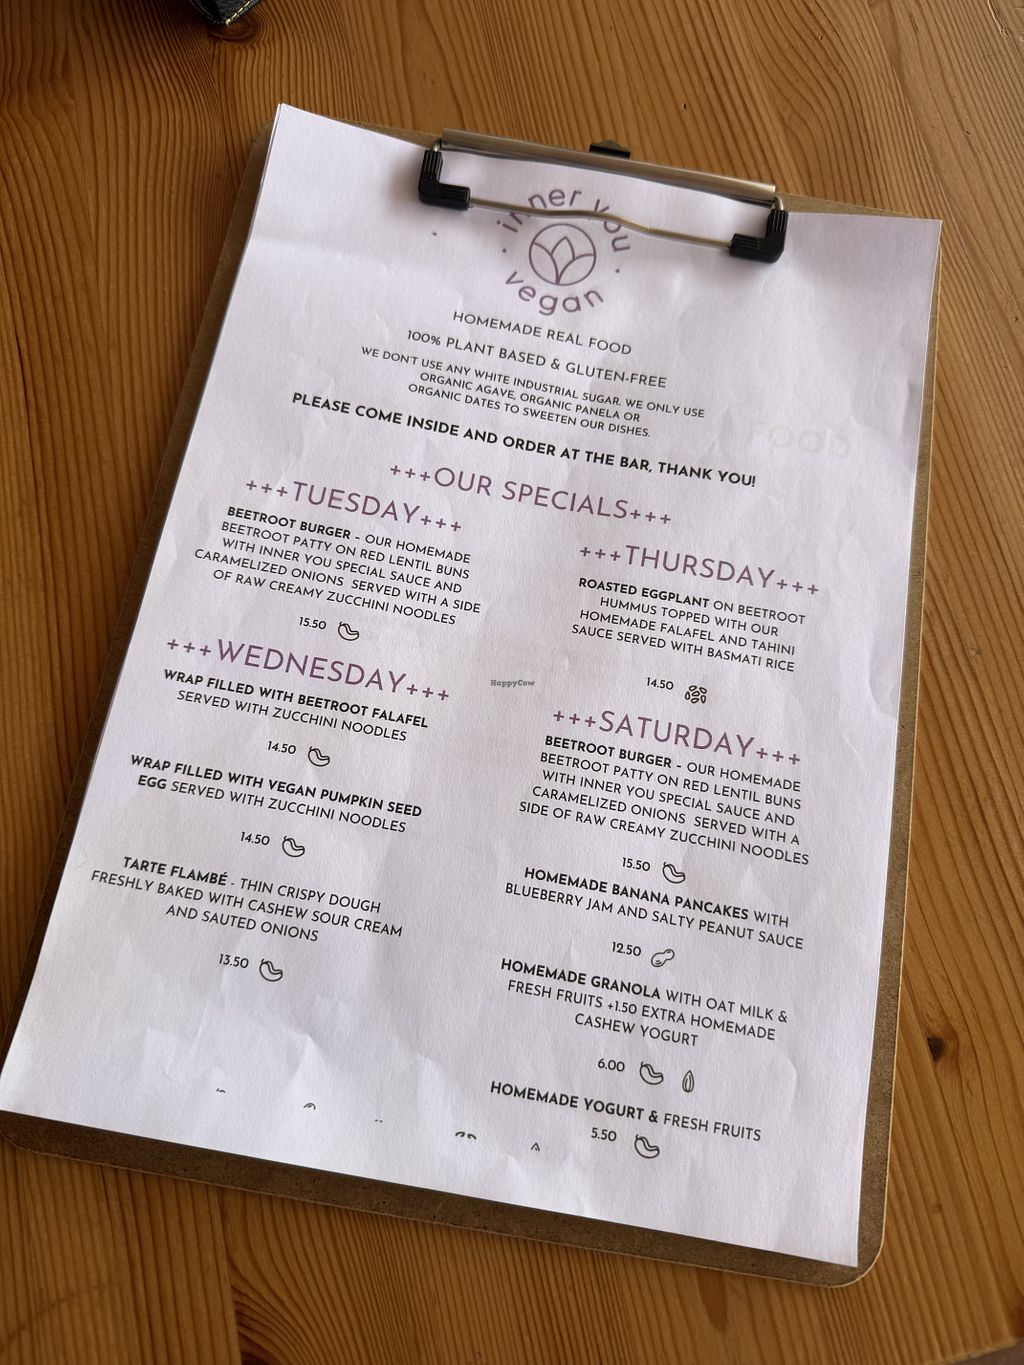 inner you
vegan
HOMEMADE REAL FOOD
100% PLANT BASED & GLUTEN-FREE
WE DON'T USE ANY WHITE INDUSTRIAL SUGAR. WE ONLY USE
ORGANIC AGAVE, ORGANIC PANELA OR
ORGANIC DATES TO SWEETEN OUR DISHES.
PLEASE COME INSIDE AND ORDER AT THE BAR, THANK YOU!
+++OUR SPECIALS+++
+++TUESDAY+++
BEETROOT BURGER - OUR HOMEMADE
BEETROOT PATTY ON RED LENTIL BUNS
WITH INNER YOU SPECIAL SAUCE AND
CARAMELIZED ONIONS SERVED WITH A SIDE
OF RAW CREAMY ZUCCHINI NOODLES
15.50
+++WEDNESDAY+++
WRAP FILLED WITH BEETROOT FALAFEL
SERVED WITH ZUCCHINI NOODLES
14.50
WRAP FILLED WITH VEGAN PUMPKIN SEED
EGG SERVED WITH ZUCCHINI NOODLES
14.50
TARTE FLAMBÉ - THIN CRISPY DOUGH
FRESHLY BAKED WITH CASHEW SOUR CREAM
AND SAUTED ONIONS
13.50
+++THURSDAY+++
ROASTED EGGPLANT ON BEETROOT
HUMMUS TOPPED WITH OUR
HOMEMADE FALAFEL AND TAHINI
SAUCE SERVED WITH BASMATI RICE
14.50
+++SATURDAY+++
BEETROOT BURGER - OUR HOMEMADE
BEETROOT PATTY ON RED LENTIL BUNS
WITH INNER YOU SPECIAL SAUCE AND
CARAMELIZED ONIONS SERVED WITH A
SIDE OF RAW CREAMY ZUCCHINI NOODLES
15.50
HOMEMADE BANANA PANCAKES WITH
BLUEBERRY JAM AND SALTY PEANUT SAUCE
12.50
HOMEMADE GRANOLA WITH OAT MILK &
FRESH FRUITS +1.50 EXTRA HOMEMADE
CASHEW YOGURT
6.00
HOMEMADE YOGURT & FRESH FRUITS
5.50
HappyCow